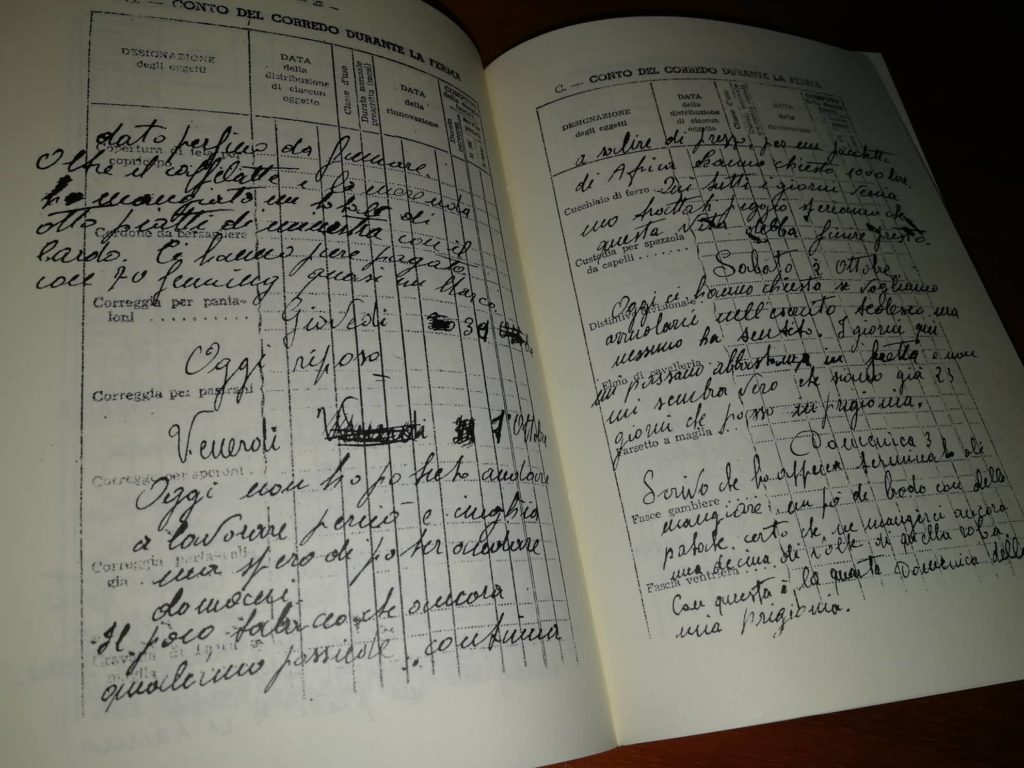 — CONTO DEL CORREDO DURANTE LA FERMA
DESIGNAZIONE
degli oggetti
DATA
della
distribuzione
di ciascun
oggetto
Classe d'uso
Durata normale
prescritta (mesi)
DATA
della
rinnovazione
dato perfino da fumare.
Oltre il caffelatte e la
copricapo
mangiato un di
otto piatti di minestra con il
Cordone da bersagliere
lardo. Ci hanno pure pagato
con 70 quasi un Marco.
Correggia per panta-
loni
Giovedi 30
Oggi riposo
Correggia per pastrani
Venerdi 1° Ottobre
Corregge per speroni
Oggi non ho potuto andare
a lavorare perciò e
Correggia
gia
ma spero di poter andare
domani.
Il poco tabacco che ancora
qualcuno possiede continua
C. — CONTO DEL CORREDO DURANTE LA FERMA
DESIGNAZIONE
degli oggetti
DATA
della
distribuzione
di ciascun
oggetto
DATA
della
rinnovazione
a salire di prezzo per un pacchetto
di Africa hanno chiesto 1000 lire.
Cucchiaio di ferro
Qui tutti i giorni
speriamo che
questa vita finire presto.
Custodia per spazzola
da capelli
Sabato 2 Ottobre
Oggi ci hanno chiesto se vogliamo
Distintivo divisionale
arruolarci nell'esercito tedesco ma
nessuno ha sentito. I giorni qui
Elmo di cavalleria
passano abbastanza in fretta e non
mi sembra vero che sono già 23
giorni che passo in prigionia.
Farsetto a maglia
Domenica 3
Scrivo che ho appena terminato di
Fasce gambiere
mangiare: un pò di brodo con delle
patate. certo che ne mangerei ancora
una decina di volte di quella roba.
Fascia ventriera
Con questa è la quarta Domenica della
mia prigionia.